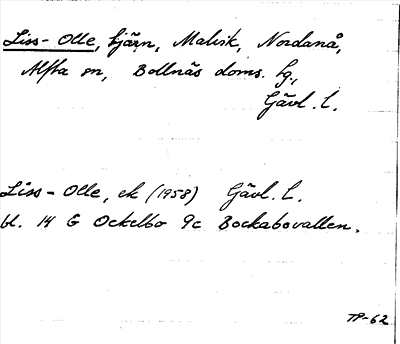 Liss-Olle, tjärn, Malvik, Nordanå,
Alfta sn, Bollnäs doms. hg.,
Gävl. l.
Liss-Olle, ek (1958) Gävl. l.
bl. 14 G Ockelbo 9c Bockabovallen.
TP-62